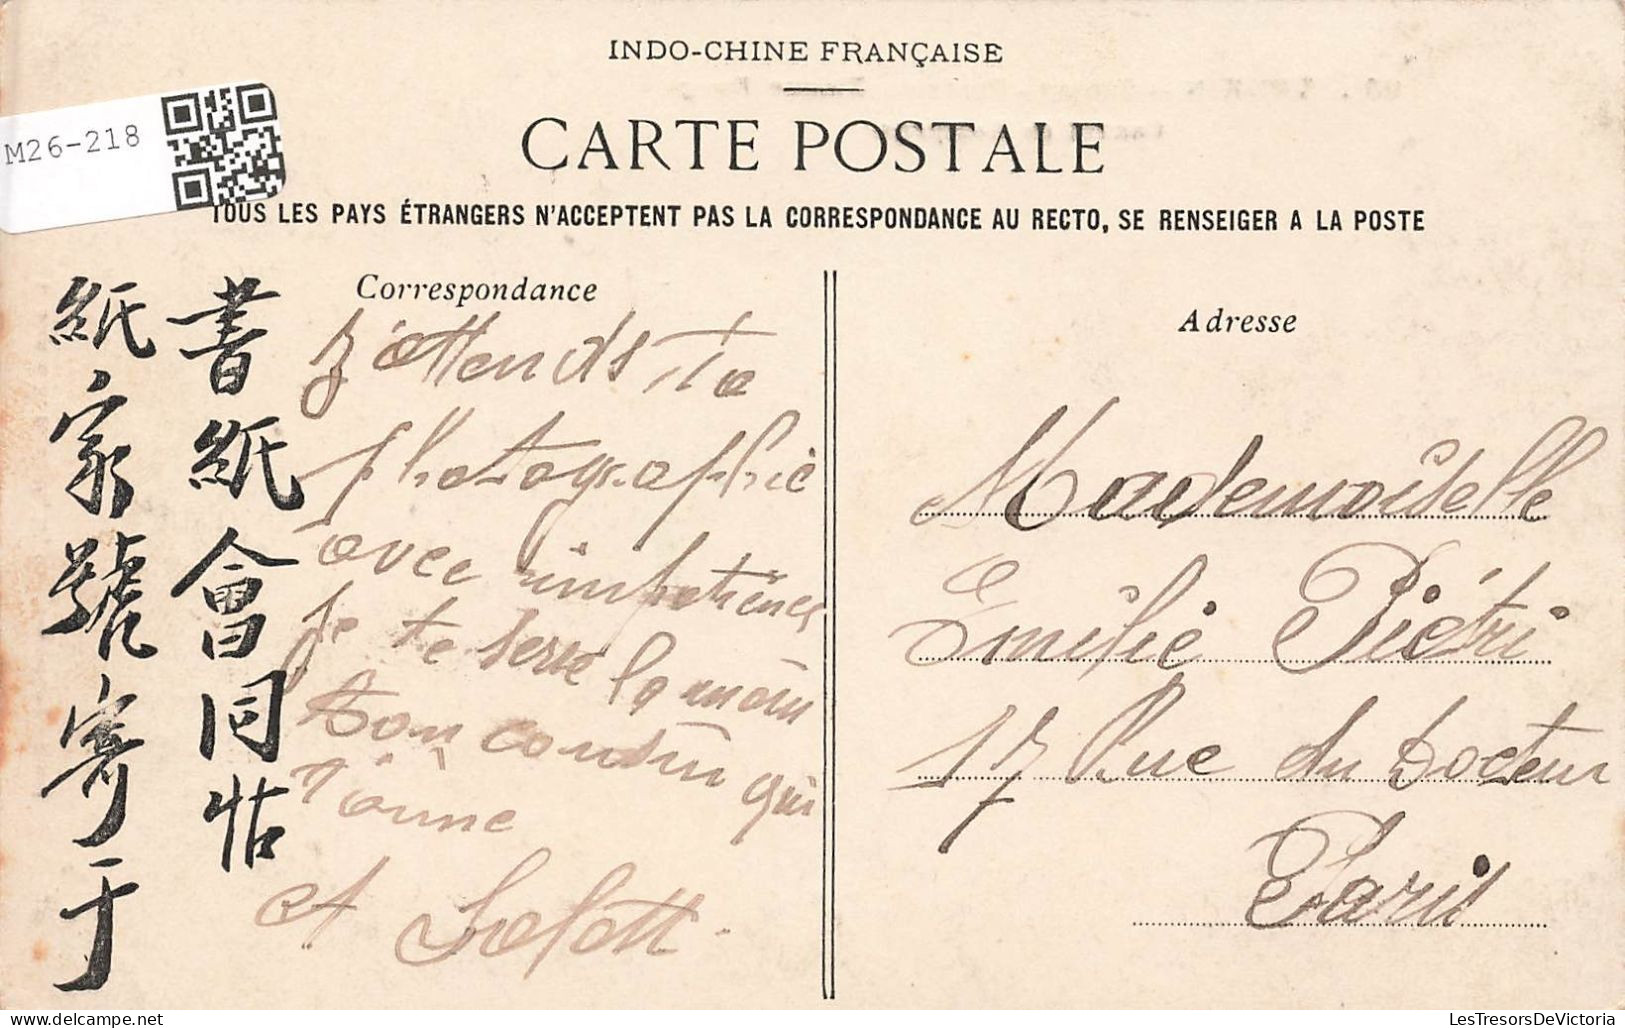 INDO-CHINE FRANÇAISE
CARTE POSTALE
M26-218
TOUS LES PAYS ÉTRANGERS N'ACCEPTENT PAS LA CORRESPONDANCE AU RECTO, SE RENSEIGER A LA POSTE
Correspondance
J'attends ta
photographie
avec impatience
Je te serre la main
Ton cousin qui
t'aime
A
書紙會同
紙家號寄于
Adresse
Mademoiselle
Emilie Piétri
17 Rue du Docteur
Paris
LesTresorsDeVictoria